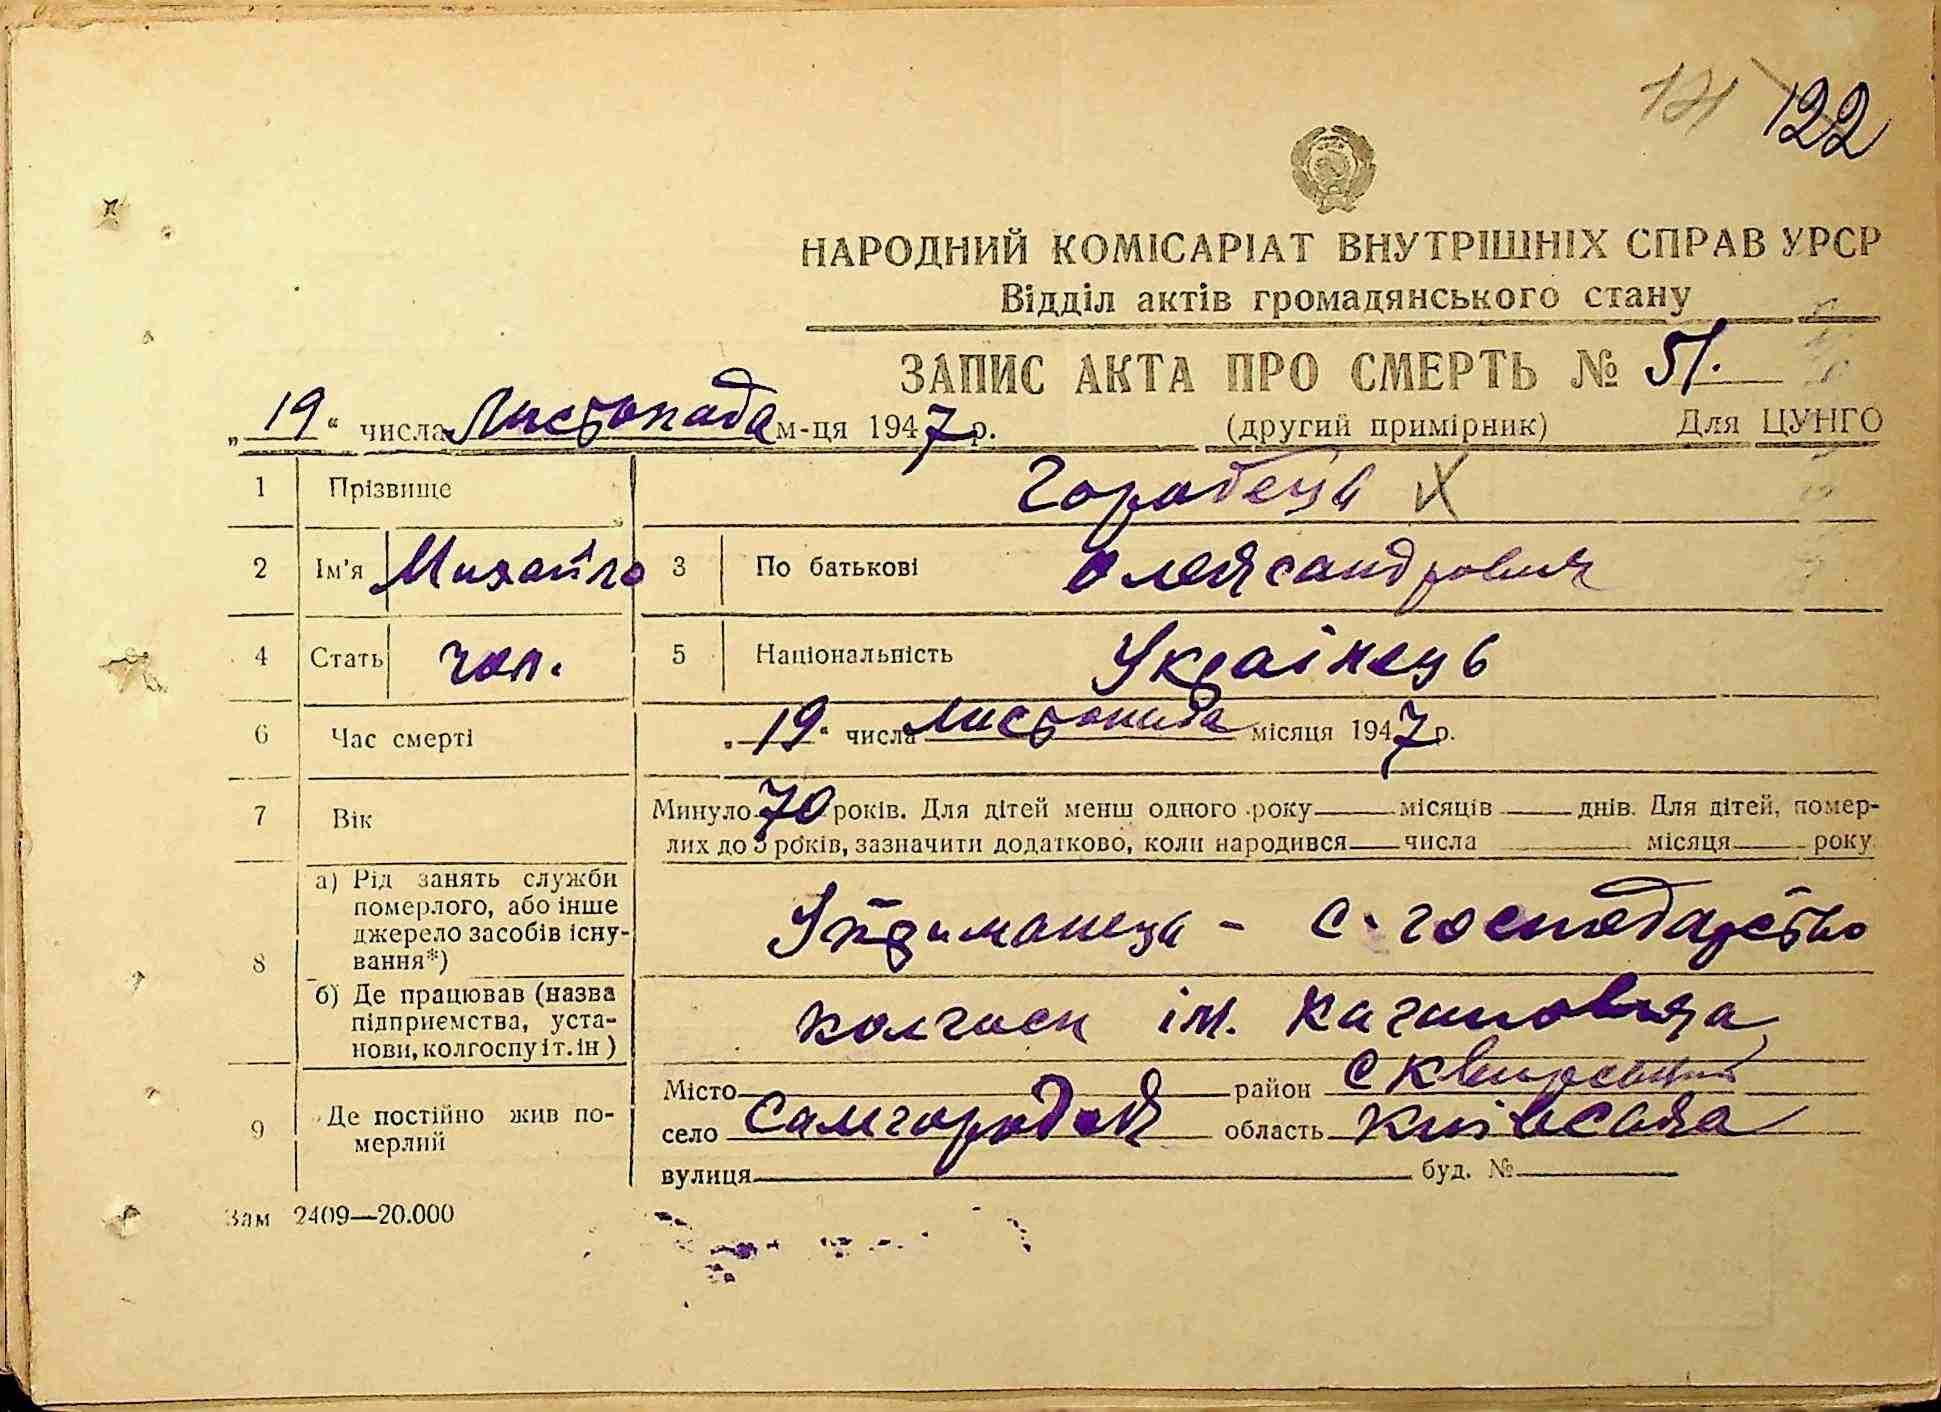 121 122
НАРОДНИЙ КОМІСАРІАТ ВНУТРІШНІХ СПРАВ УРСР
Відділ актів громадянського стану
ЗАПИС АКТА ПРО СМЕРТЬ № 51.
„19“ числа Листопада м-ця 1947 р. (другий примірник) Для ЦУНГО
1 Прізвище Горобець X
2 Ім'я Михайло 3 По батькові Олександрович
4 Стать чол. 5 Національність Українець
6 Час смерті „19“ числа Листопада місяця 1947 р.
7 Вік Минуло 70 років. Для дітей менш одного року місяців днів. Для дітей, помер-
лих до 5 років, зазначити додатково, коли народився числа місяця року
8 а) Рід занять служби
померлого, або інше
джерело засобів існу-
вання*)
Утриманець - с-господарство
б) Де працював (назва
підприємства, уста-
нови, колгоспу і т. ін)
колгосп ім. Кагановича
9 Де постійно жив по-
мерлий
Місто район Сквирський
село Самгородок область Київська
вулиця буд. №
Зам 2409—20.000